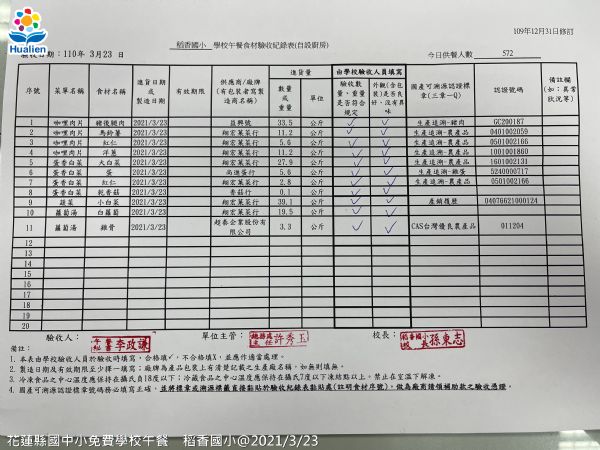 Hualien
109年12月31日修訂
稻香國小 學校午餐食材驗收紀錄表(自設廚房)
驗收日期：110年 3月23 日
今日供餐人數 572
序號 菜單名稱 食材名稱 進貨日期或製造日期 有效期限 供應商/廠牌(有包裝者寫製造商名稱) 進貨量 數量或重量 單位 由學校驗收人員填寫 驗收數量、重量是否符合規定 外觀(含包裝)是否良好、沒有異味 國產可溯源認證標章(三章一Q) 認證號碼 備註欄(如：異常狀況等)
1 咖哩肉片 豬後腿肉 2021/3/23 益群號 33.5 公斤 ✓ ✓ 生產追溯-豬肉 GC200187
2 咖哩肉片 馬鈴薯 2021/3/23 翔宏菜菜行 11.2 公斤 ✓ ✓ 生產追溯-農產品 0401002059
3 咖哩肉片 紅仁 2021/3/23 翔宏菜菜行 5.6 公斤 ✓ ✓ 生產追溯-農產品 0501002166
4 咖哩肉片 洋蔥 2021/3/23 翔宏菜菜行 11.2 公斤 ✓ ✓ 生產追溯-農產品 1001001860
5 蛋香白菜 大白菜 2021/3/23 翔宏菜菜行 27.9 公斤 ✓ ✓ 生產追溯-農產品 1601002131
6 蛋香白菜 蛋 2021/3/23 尚進蛋行 5.6 公斤 ✓ ✓ 生產追溯-雞蛋 5240000717
7 蛋香白菜 紅仁 2021/3/23 翔宏菜菜行 2.8 公斤 ✓ ✓ 生產追溯-農產品 0501002166
8 蛋香白菜 乾香菇 2021/3/23 香菇行 0.1 公斤 ✓ ✓
9 蔬菜 小白菜 2021/3/23 翔宏菜菜行 39.1 公斤 ✓ ✓ 產銷履歷 04076621000124
10 蘿蔔湯 白蘿蔔 2021/3/23 翔宏菜菜行 19.5 公斤 ✓ ✓
11 蘿蔔湯 雞骨 2021/3/23 超秦企業股份有限公司 3.3 公斤 ✓ ✓ CAS台灣優良農產品 011204
12
13
14
15
16
17
18
19
20
驗收人： 李政議 單位主管： 許秀玉 校長： 孫東志
備註：
1. 本表由學校驗收人員於驗收時填寫，合格填✓，不合格填X，並應作適當處理。
2. 製造日期及有效期限至少擇一填寫；廠牌應為產品包裝上有清楚記載之生產廠名稱，如無則填無。
3. 冷凍食品之中心溫度應保持在攝氏負18度以下；冷藏食品之中心溫度應保持在攝氏7度以下凍結點以上。禁止在室溫下解凍。
4. 國產可溯源認證標章號碼務必填寫正確，並將標章或溯源標籤直接黏貼於驗收紀錄表黏貼處(註明食材序號)，做為廠商請領補助款之驗收憑證。
花蓮縣國中小免費學校午餐 稻香國小@2021/3/23